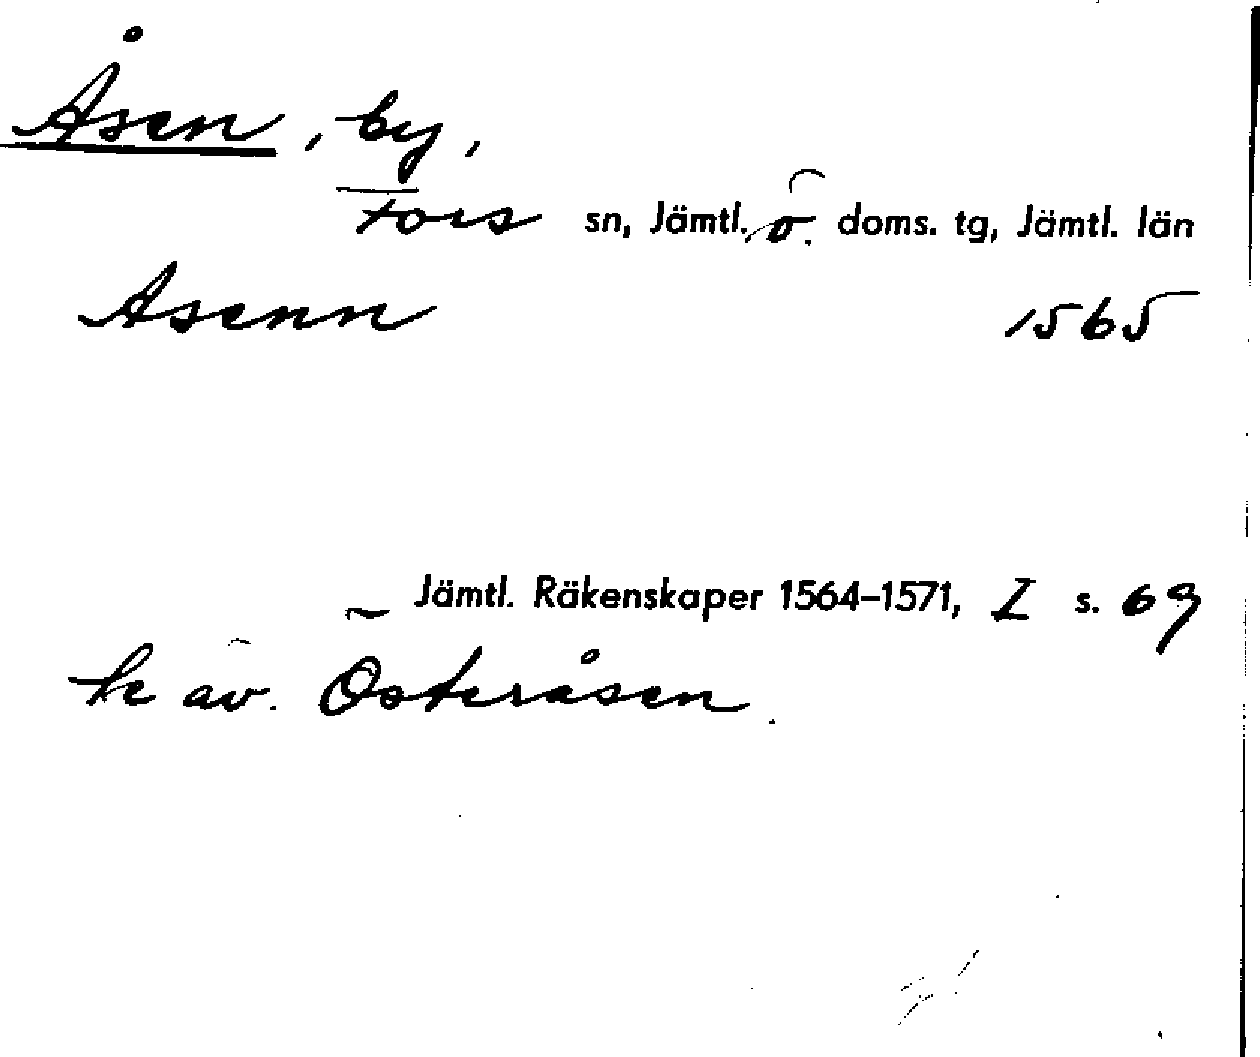 Åsen, by,
Fors sn, Jämtl. ö. doms. tg, Jämtl. län
Åsenn 1565
Jämtl. Räkenskaper 1564–1571, I s. 69
Se äv. Österåsen.